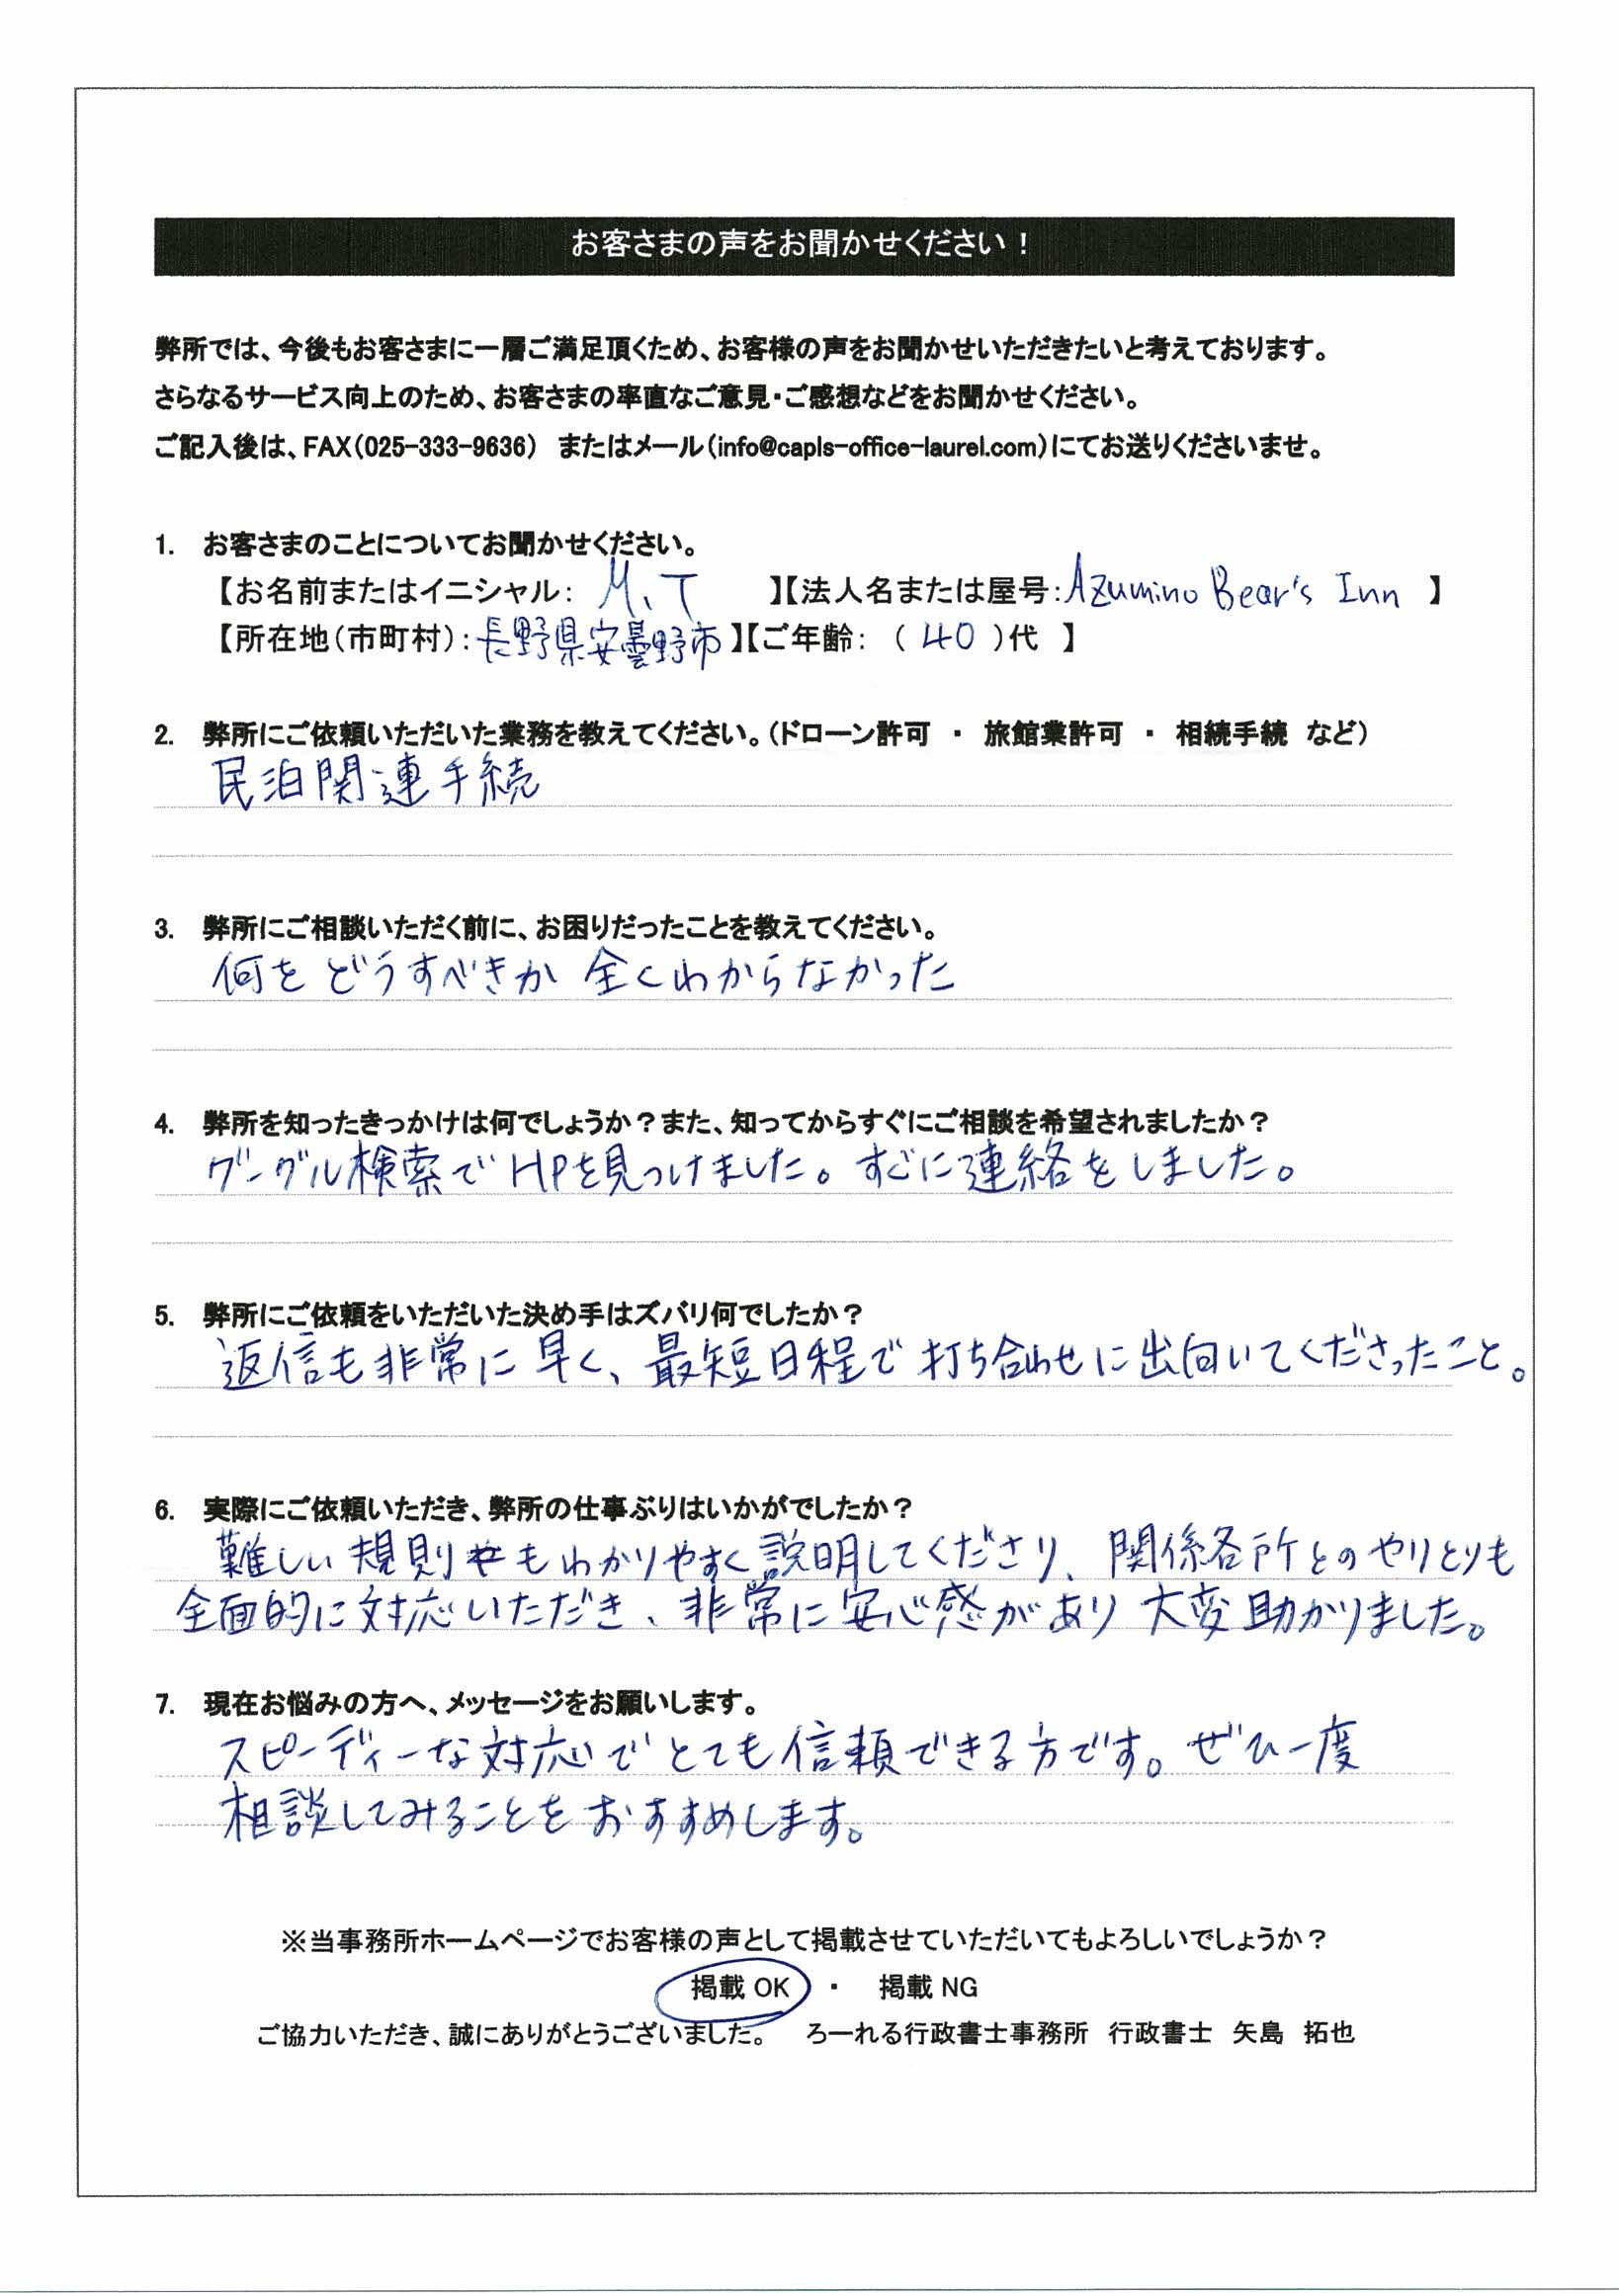 お客さまの声をお聞かせください！
弊所では、今後もお客さまに一層ご満足頂くため、お客様の声をお聞かせいただきたいと考えております。
さらなるサービス向上のため、お客さまの率直なご意見・ご感想などをお聞かせください。
ご記入後は、FAX（025-333-9636） またはメール（info@capls-office-laurel.com）にてお送りくださいませ。
1. お客さまのことについてお聞かせください。
【お名前またはイニシャル： M、T 】【法人名または屋号：Azumino Bear's Inn 】
【所在地（市町村）：長野県安曇野市】【ご年齢：（ 40 ）代 】
2. 弊所にご依頼いただいた業務を教えてください。（ドローン許可 ・ 旅館業許可 ・ 相続手続 など）
民泊関連手続
3. 弊所にご相談いただく前に、お困りだったことを教えてください。
何をどうすべきか 全くわからなかった
4. 弊所を知ったきっかけは何でしょうか？また、知ってからすぐにご相談を希望されましたか？
グーグル検索でHPを見つけました。すぐに連絡をしました。
5. 弊所にご依頼をいただいた決め手はズバリ何でしたか？
返信も非常に早く、最短日程で打ち合わせに出向いてくださったこと。
6. 実際にご依頼いただき、弊所の仕事ぶりはいかがでしたか？
難しい規則もわかりやすく説明してくださり、関係各所とのやりとりも
全面的に対応いただき、非常に安心感があり大変助かりました。
7. 現在お悩みの方へ、メッセージをお願いします。
スピーディーな対応でとても信頼できる方です。ぜひ一度
相談してみることをおすすめします。
※当事務所ホームページでお客様の声として掲載させていただいてもよろしいでしょうか？
掲載 OK ・ 掲載 NG
ご協力いただき、誠にありがとうございました。 ろーれる行政書士事務所 行政書士 矢島 拓也